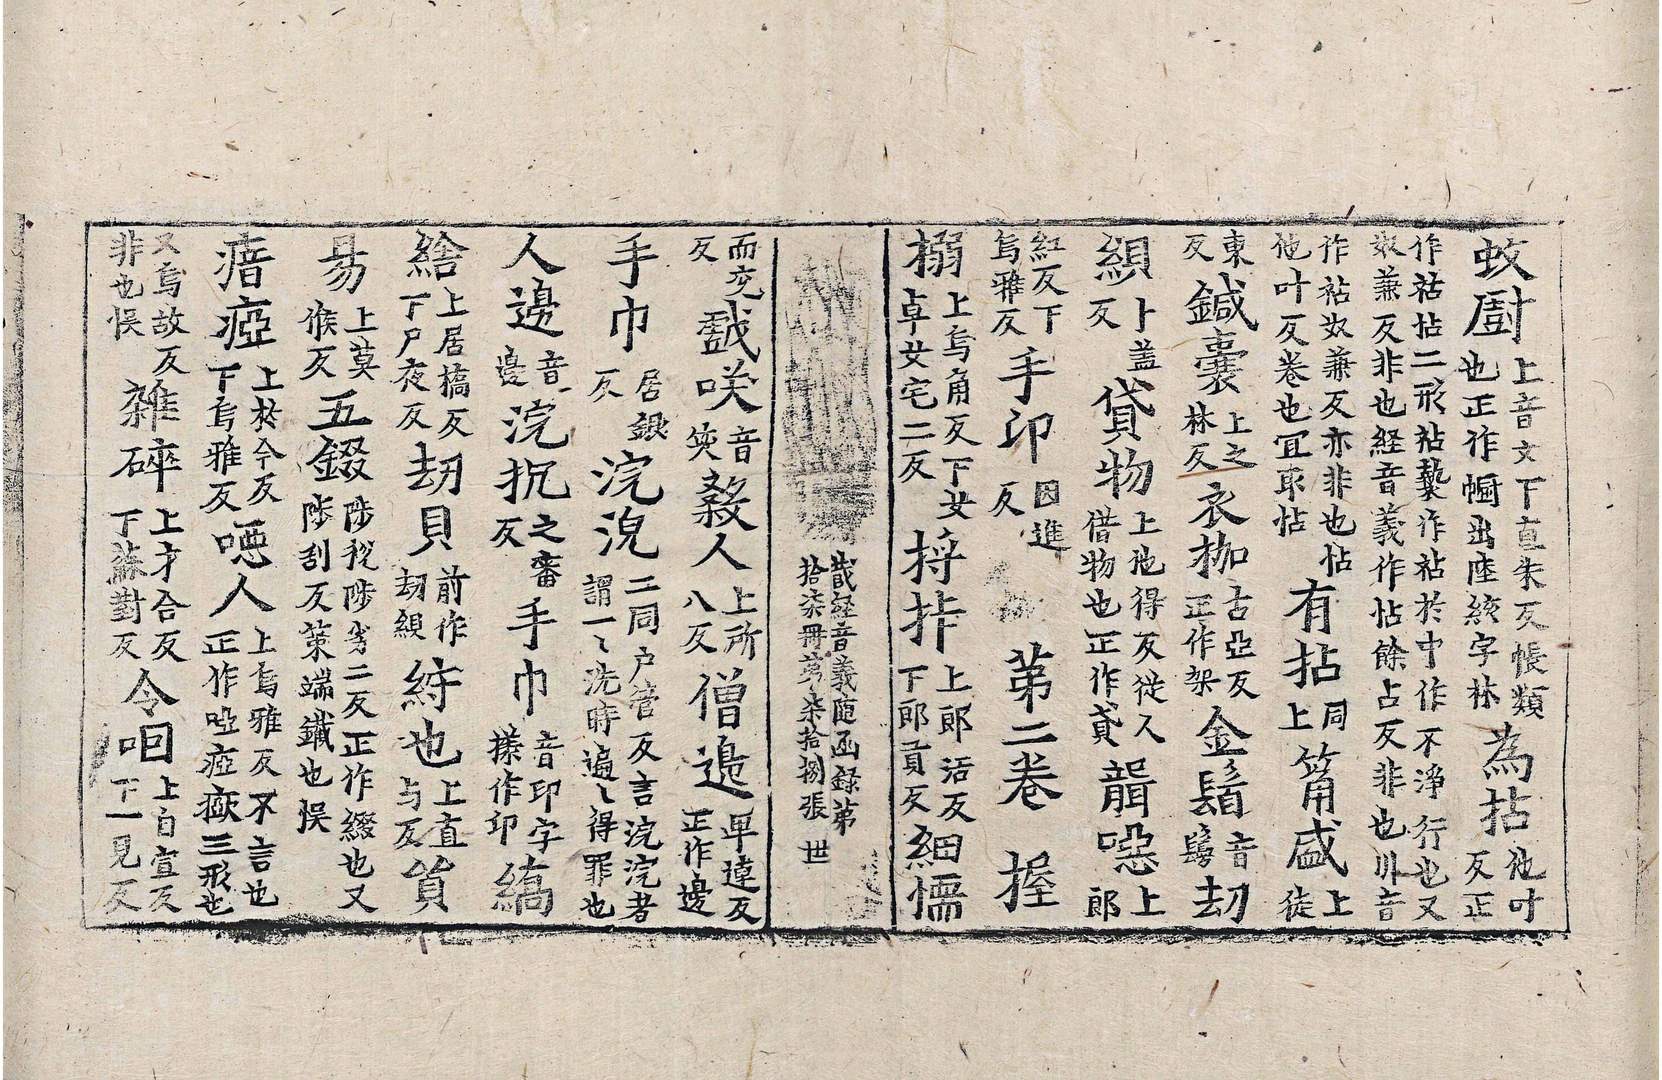 蚊㕑上音文下直朱反帳類也正作幮出座絃字林為拈他叶反正
作䄡怗二形䄡褺作䄡䄡於中作不淨行也又奴兼反非也経音義作怗餘占反非也川音
作䄡奴兼反亦非也怗他叶反卷也冝取怗有拈同上筩盛上徒
東反鍼囊上之林反衣枷古亞反正作架金鬚音𩓣刧
䋄卜盖反貸物上他得反從人借物也正作貣聾𢙣上郎
紅反下烏雅反手印因進反第二卷握
搦上烏角反下女卓女宅二反捋挊上郎活反下郎貢反細懦
藏経音義随函録第拾柒冊第柒拾捌張世
而兖反戲㗛音笑煞人上所八反僧邉𤰞連反正作邊
手巾居銀反浣涀二同户管反言浣浣者謂一〻洗時遍〻得罪也
人邊音邊浣抌之審反手巾音印字㨾作印縞
繪上居橋反下尸夜反刧貝前作刧䋄紵也上直与反貿
昜上莫㑋反五錣陟稅陟劣二反正作綴也又陟刮反䇿端鐵也悮
瘖瘂上扵今反下烏雅反𠾂人上烏雅反不言也正作啞瘂𤸱三形也
又烏故反非也悮雜碎上才合反下蘇對反令㖵上自宣反下一見反